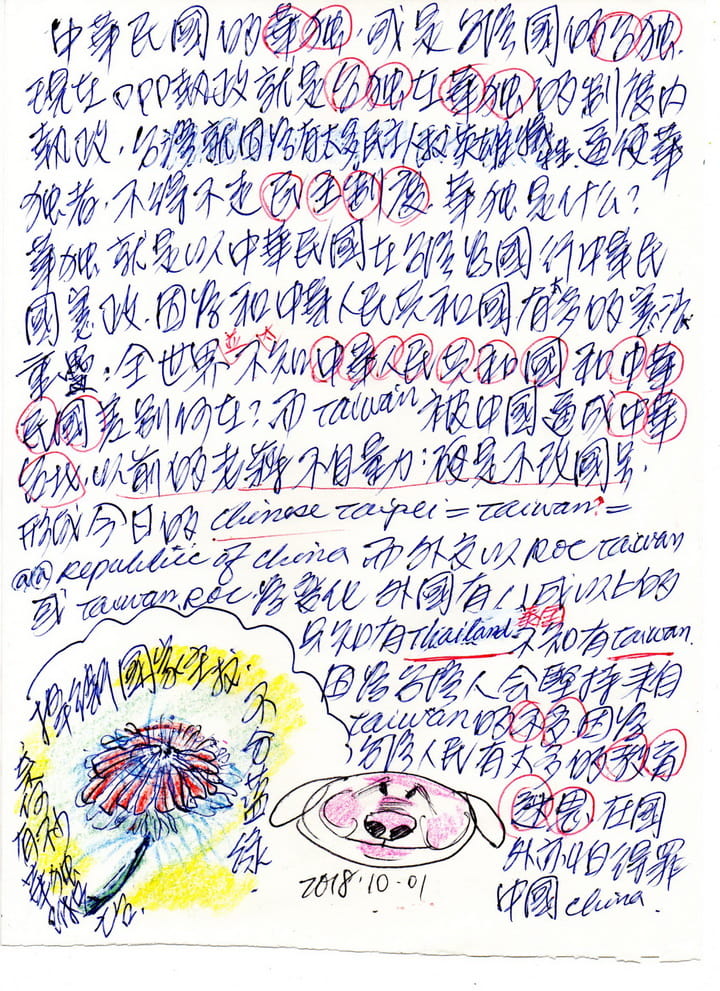 中華民國的華独，或是台湾國的台独.
現在DPP執政就是台独在華独的制度内
執政，台灣就因為有太多民主人权英雄犧牲 逼使華
独者，不得不走民主制度. 華独是什么？
華独就是以中華民國在台湾為國行中華民
國憲政. 因為和中華人民共和國有太多的憲法
重疊：全世界並太不知中華人民共和國和中華
民國差别何在？而Taiwan被中國逼成中華
台北，以前的老蔣不自量力：硬是不改國号，
形成今日的 Chinese Taipei = Taiwan? =
Republic of China 而外交以ROC Taiwan
或Taiwan.ROC為變化 外國有八成以上的
只知有Thailand泰国不知有Taiwan.
因為台湾人会堅持來自
Taiwan的不多. 因為
台湾人民有太多的教育
在國
外亦怕得罪
中國China.
國家
不分藍綠
2018.10-01